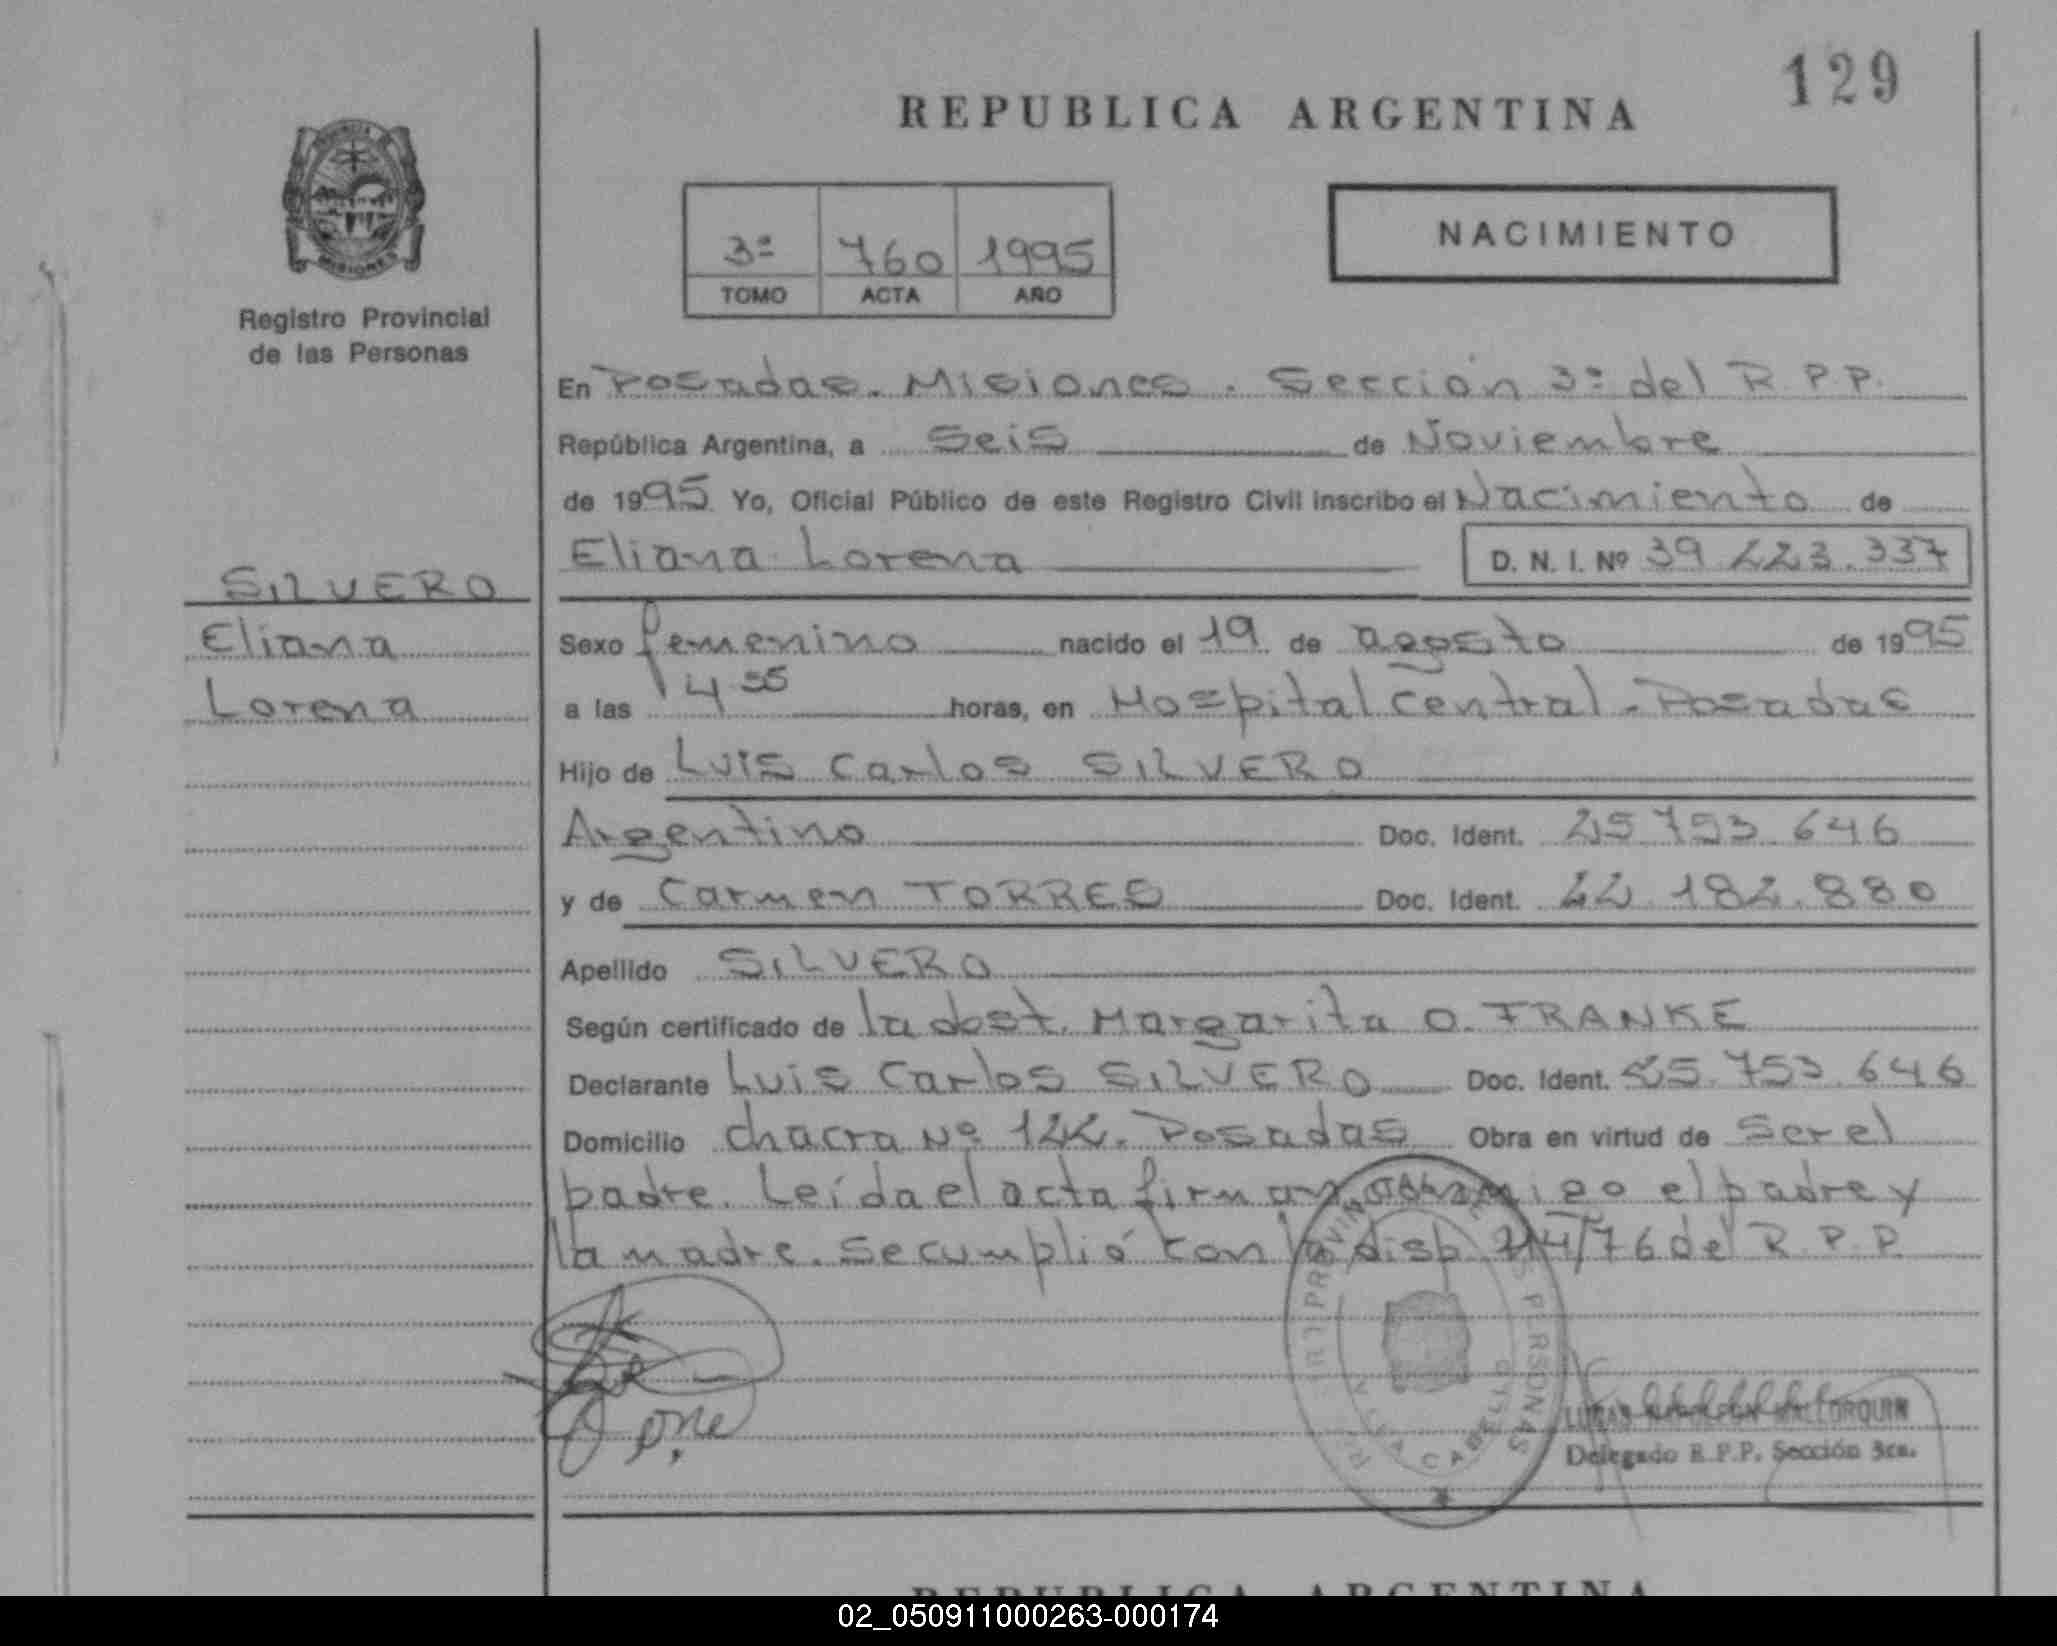 129
REPUBLICA ARGENTINA
MISIONES
Registro Provincial
de las Personas
3ª 760 1995
TOMO ACTA AÑO
NACIMIENTO
En Posadas. Misiones. Sección 3ª del R.P.P.
República Argentina, a Seis de Noviembre
de 1995 Yo, Oficial Público de este Registro Civil inscribo el Nacimiento de
Eliana Lorena D. N. I. Nº 39.223.337
SILVERO
Eliana
Lorena
Sexo femenino nacido el 19 de agosto de 1995
a las 14 55 horas, en Hospital Central - Posadas
Hijo de Luis Carlos SILVERO
Argentino Doc. Ident. 25 753 646
y de Carmen TORRES Doc. Ident. 22.182.880
Apellido SILVERO
Según certificado de la obst. Margarita O. FRANKE
Declarante Luis Carlos SILVERO Doc. Ident. 25.753.646
Domicilio chacra Nº 122. Posadas Obra en virtud de Ser el
padre. Leída el acta firman conmigo el padre y
la madre. Se cumplió con la disp. 214/76 del R.P.P.
PERSONAS
LUCAS NAPOLEON MALLORQUIN
Delegado R.P.P. Sección 3ra.
REPUBLICA ARGENTINA
02_050911000263-000174